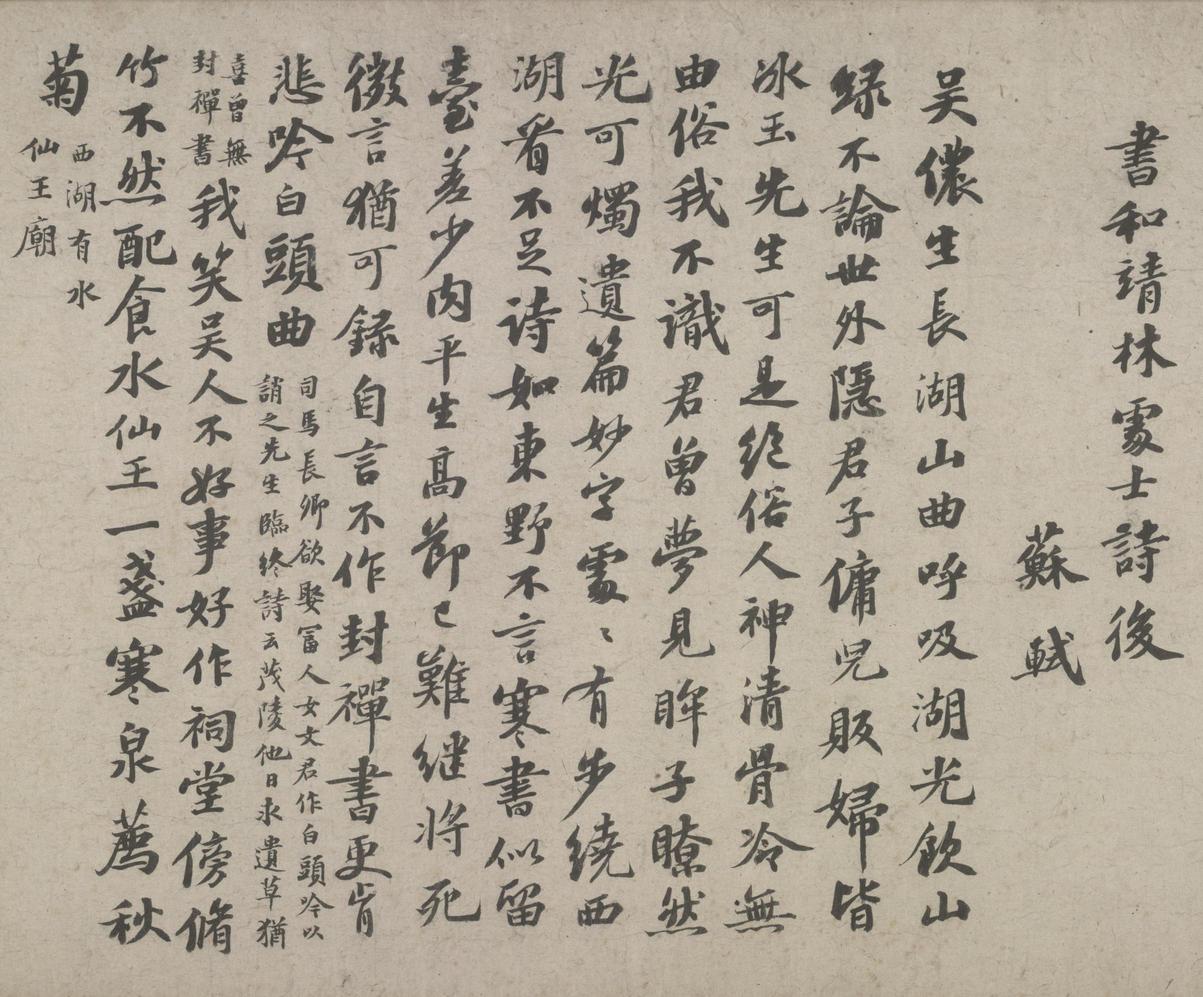 書和靖林處士詩後
蘇軾
吴儂生長湖山曲呼吸湖光飲山
緑不論世外隱君子傭兒販婦皆
冰玉先生可是絕俗人神清骨冷無
由俗我不識君曾夢見眸子瞭然
光可燭遺篇妙字處〻有步繞西
湖看不足詩如東野不言寒書似留
臺差少肉平生高節已難継將死
微言猶可録自言不作封禪書更肯
悲吟白頭曲
司馬長卿欲娶富人女文君作白頭吟以
誚之先生臨終詩云茂陵他日求遺草猶
喜曾無
封禪書
我笑吴人不好事好作祠堂傍脩
竹不然配食水仙王一盞寒泉薦秋
菊
西湖有水
仙王廟